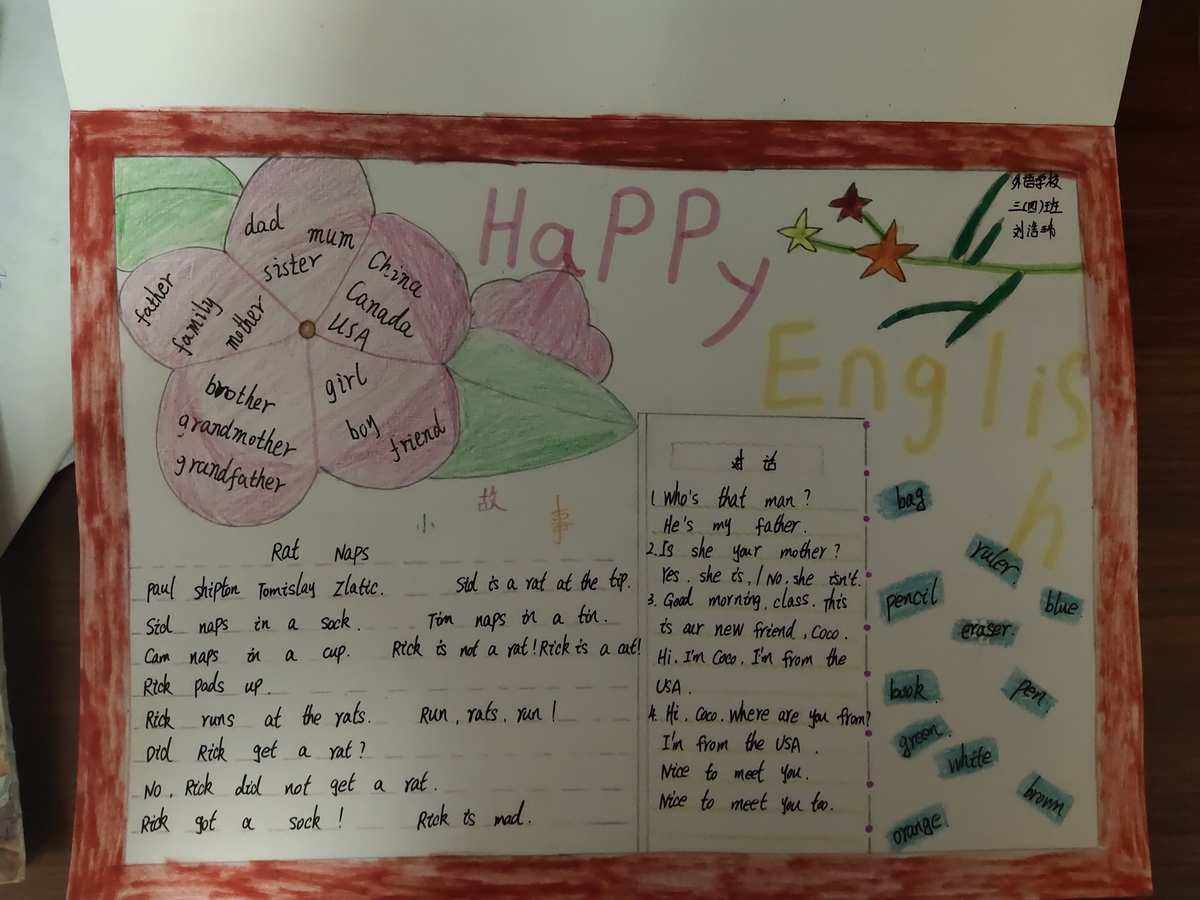 HaPPy
English
外语学校
三(四)班
刘浩玮
dad mum
sister
China
Canada
USA
father
family
mother
brother
grandmother
grandfather
girl
boy
friend
小故事
Rat Naps
Paul shipton Tomislav Zlatic. Sid is a rat at the tip.
Sid naps in a sock. Tim naps in a tin.
Cam naps in a cup. Rick is not a rat! Rick is a cat!
Rick pads up.
Rick runs at the rats. Run, rats, run!
Did Rick get a rat?
No, Rick did not get a rat.
Rick got a sock! Rick is mad.
对话
1. Who's that man?
He's my father.
2. Is she your mother?
Yes, she is, / No, she isn't.
3. Good morning, class. This
is our new friend, Coco.
Hi, I'm Coco, I'm from the
USA.
4. Hi, Coco. Where are you from?
I'm from the USA.
Nice to meet you.
Nice to meet you too.
bag
ruler
pencil
blue
eraser
book
pen
green
white
brown
orange